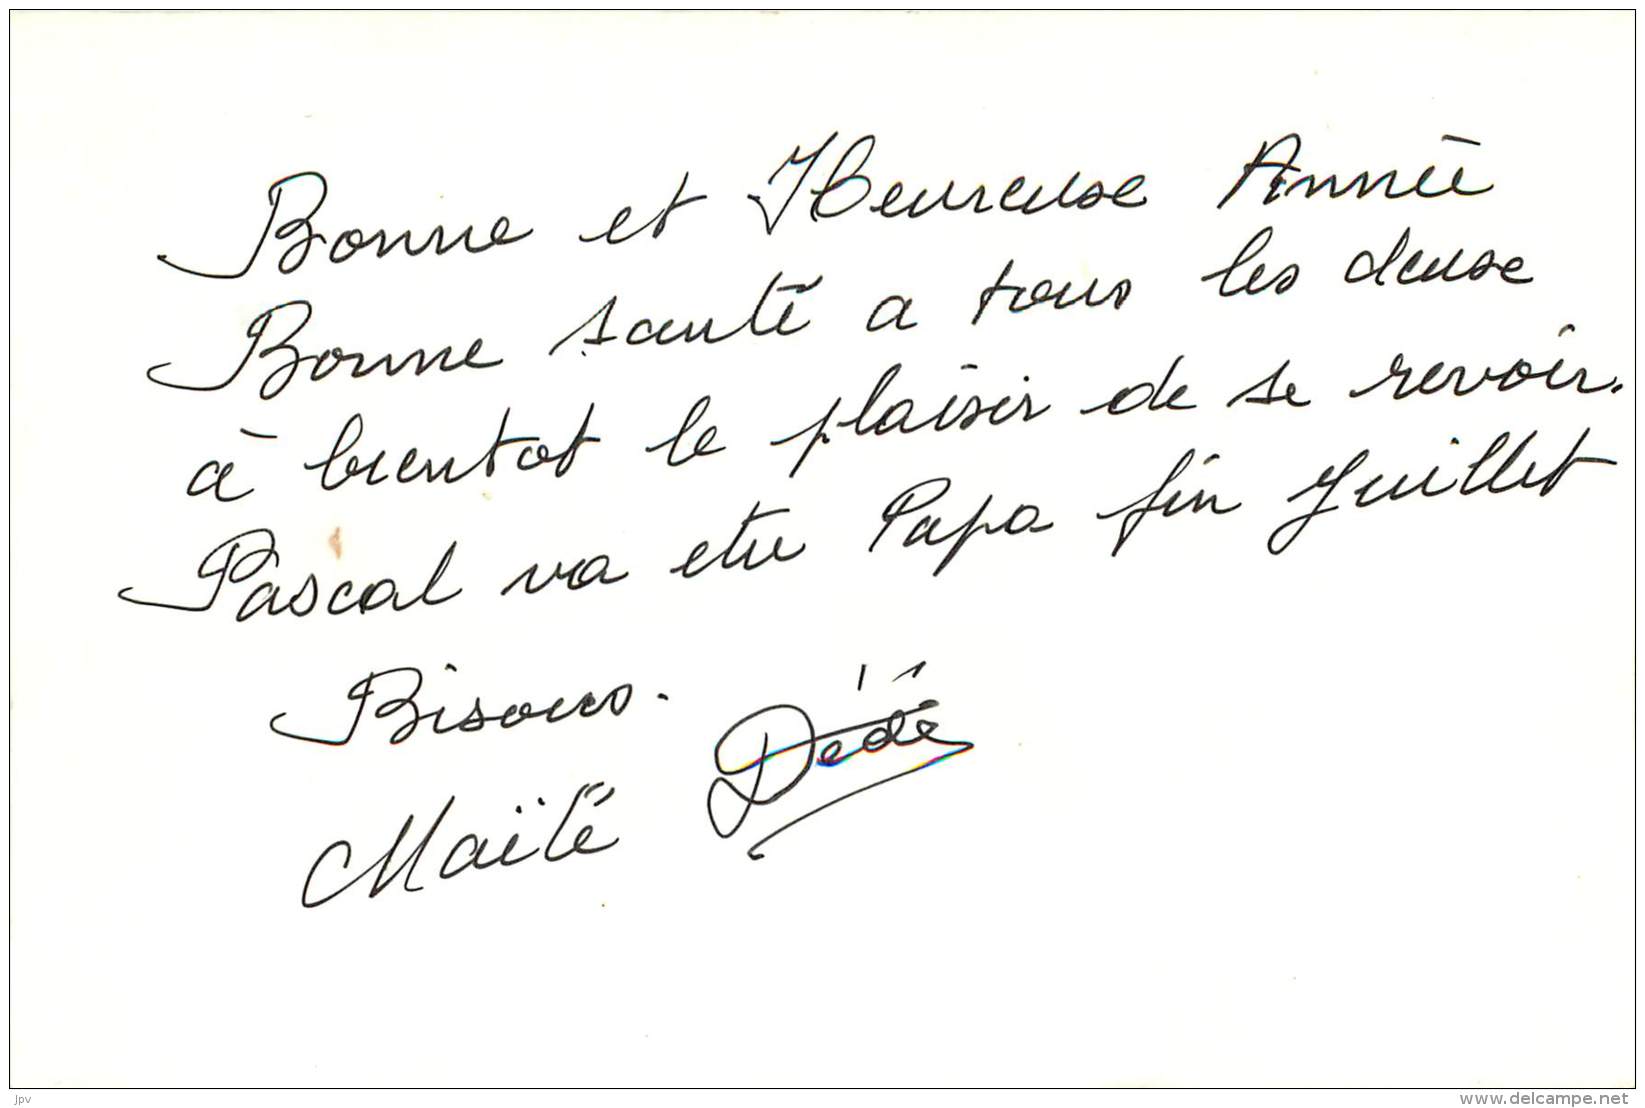 Bonne et Heureuse Année
Bonne santé a tous les deuse
à bientot le plaisir de se revoir.
Pascal va etre Papa fin Juillet
Bisous.
Maïté Dédé
jpv
www.delcampe.net